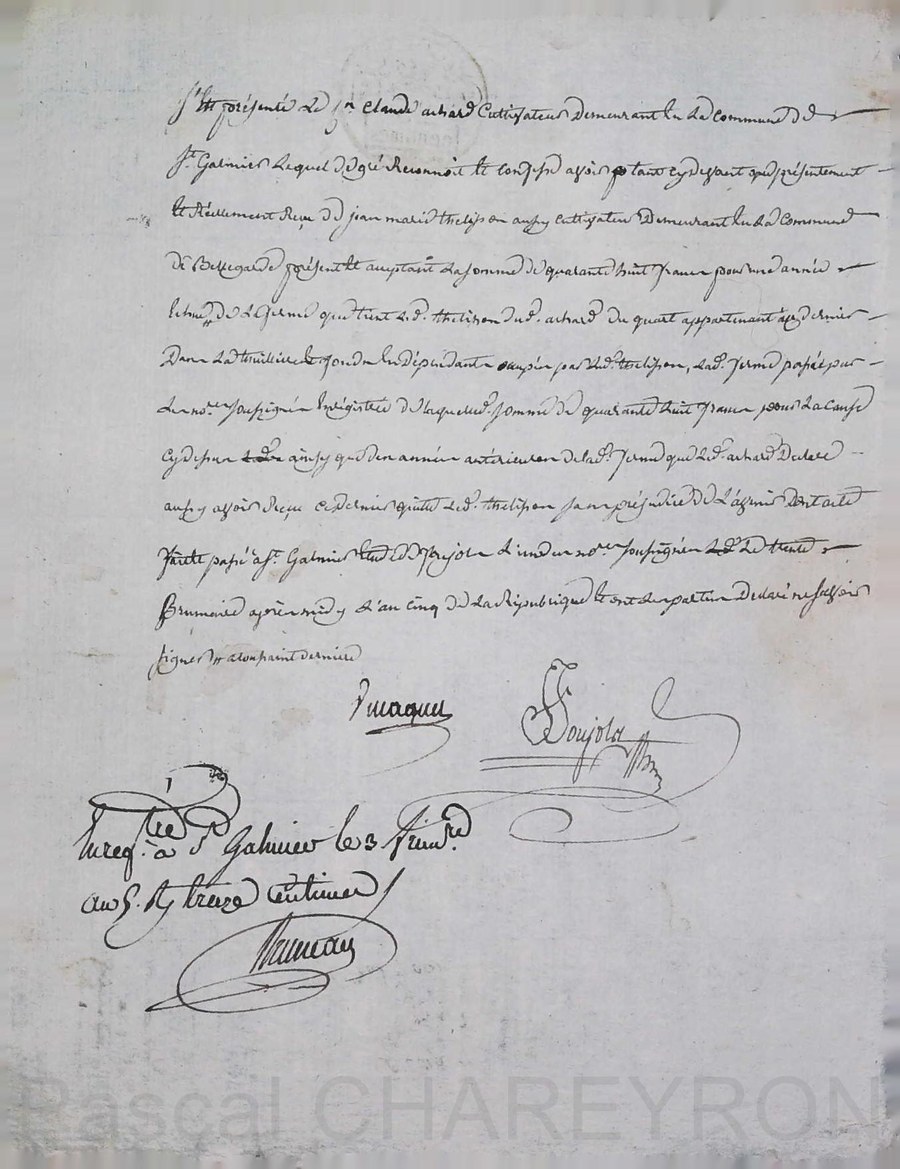 S'est présenté le Sr. Claude achard Cultivateur Demeurant en La Commune de
St. Galmier Lequel de gré Reconnoit et confesse avoir tant cy devant que présentement
et Réellement Reçu de jean marie thelisson aussy cultivateur Demeurant en La Commune
de Bellegarde présent et acceptant La somme de quarante huit francs pour une année
de La ferme que tient Led. thelisson dud. achard du quart appartenant au dernier
Dans La thuillière et fonds en Dépendants occupés par Led. thelisson, Lad. ferme passée par
Le nore. soussigné Enregistrée de laquelle somme de quarante huit francs pour La Cause
cy dessus ainsy que des années antérieures de lad. ferme que Led. achard Declare
aussy avoir Reçu ce dernier quitte Led. thelisson sans préjudice de L'avenir Dont acte
passé à St. Galmier Etude de Poujola L'un des nores. soussignés Le trente
Brumaire après midy L'an cinq de La République et ont Les parties Declaré ne savoir
signer
Poujola
Enregtré. à St Galmier le 3 frimre.
an 5. Rç treize Centimes
Bruneau
Pascal CHAREYRON